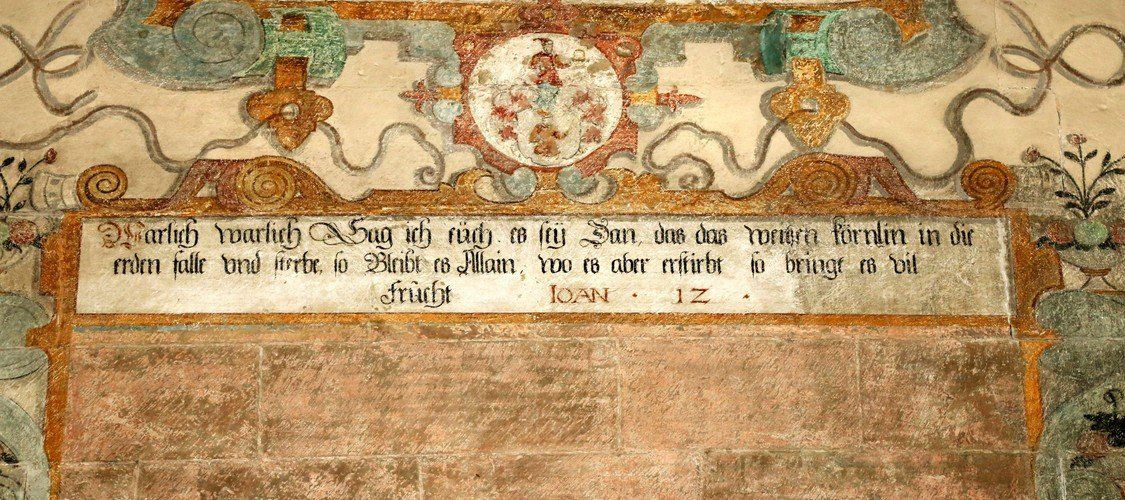 Warlich warlich Sag ich eüch es seÿ Dan, das das weitzen körnlin in die
erden falle vnd sterbe, so Bleibt es Allain, wo es aber erstirbt so bringt es vil
frücht IOAN · 12 ·